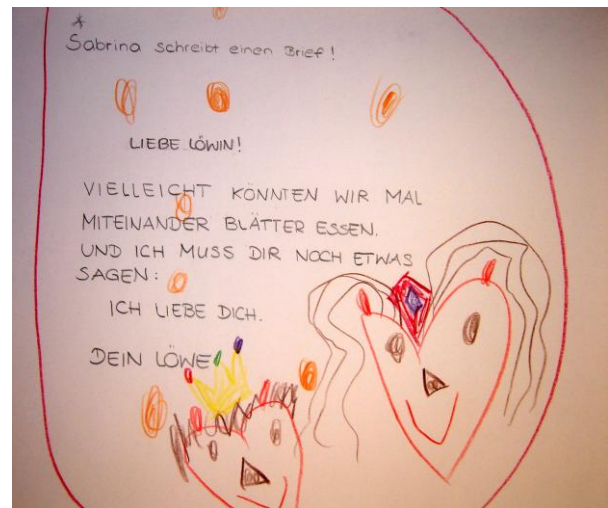 Sabrina schreibt einen Brief!
LIEBE LÖWIN!
VIELLEICHT KÖNNTEN WIR MAL
MITEINANDER BLÄTTER ESSEN.
UND ICH MUSS DIR NOCH ETWAS
SAGEN:
ICH LIEBE DICH.
DEIN LÖWE